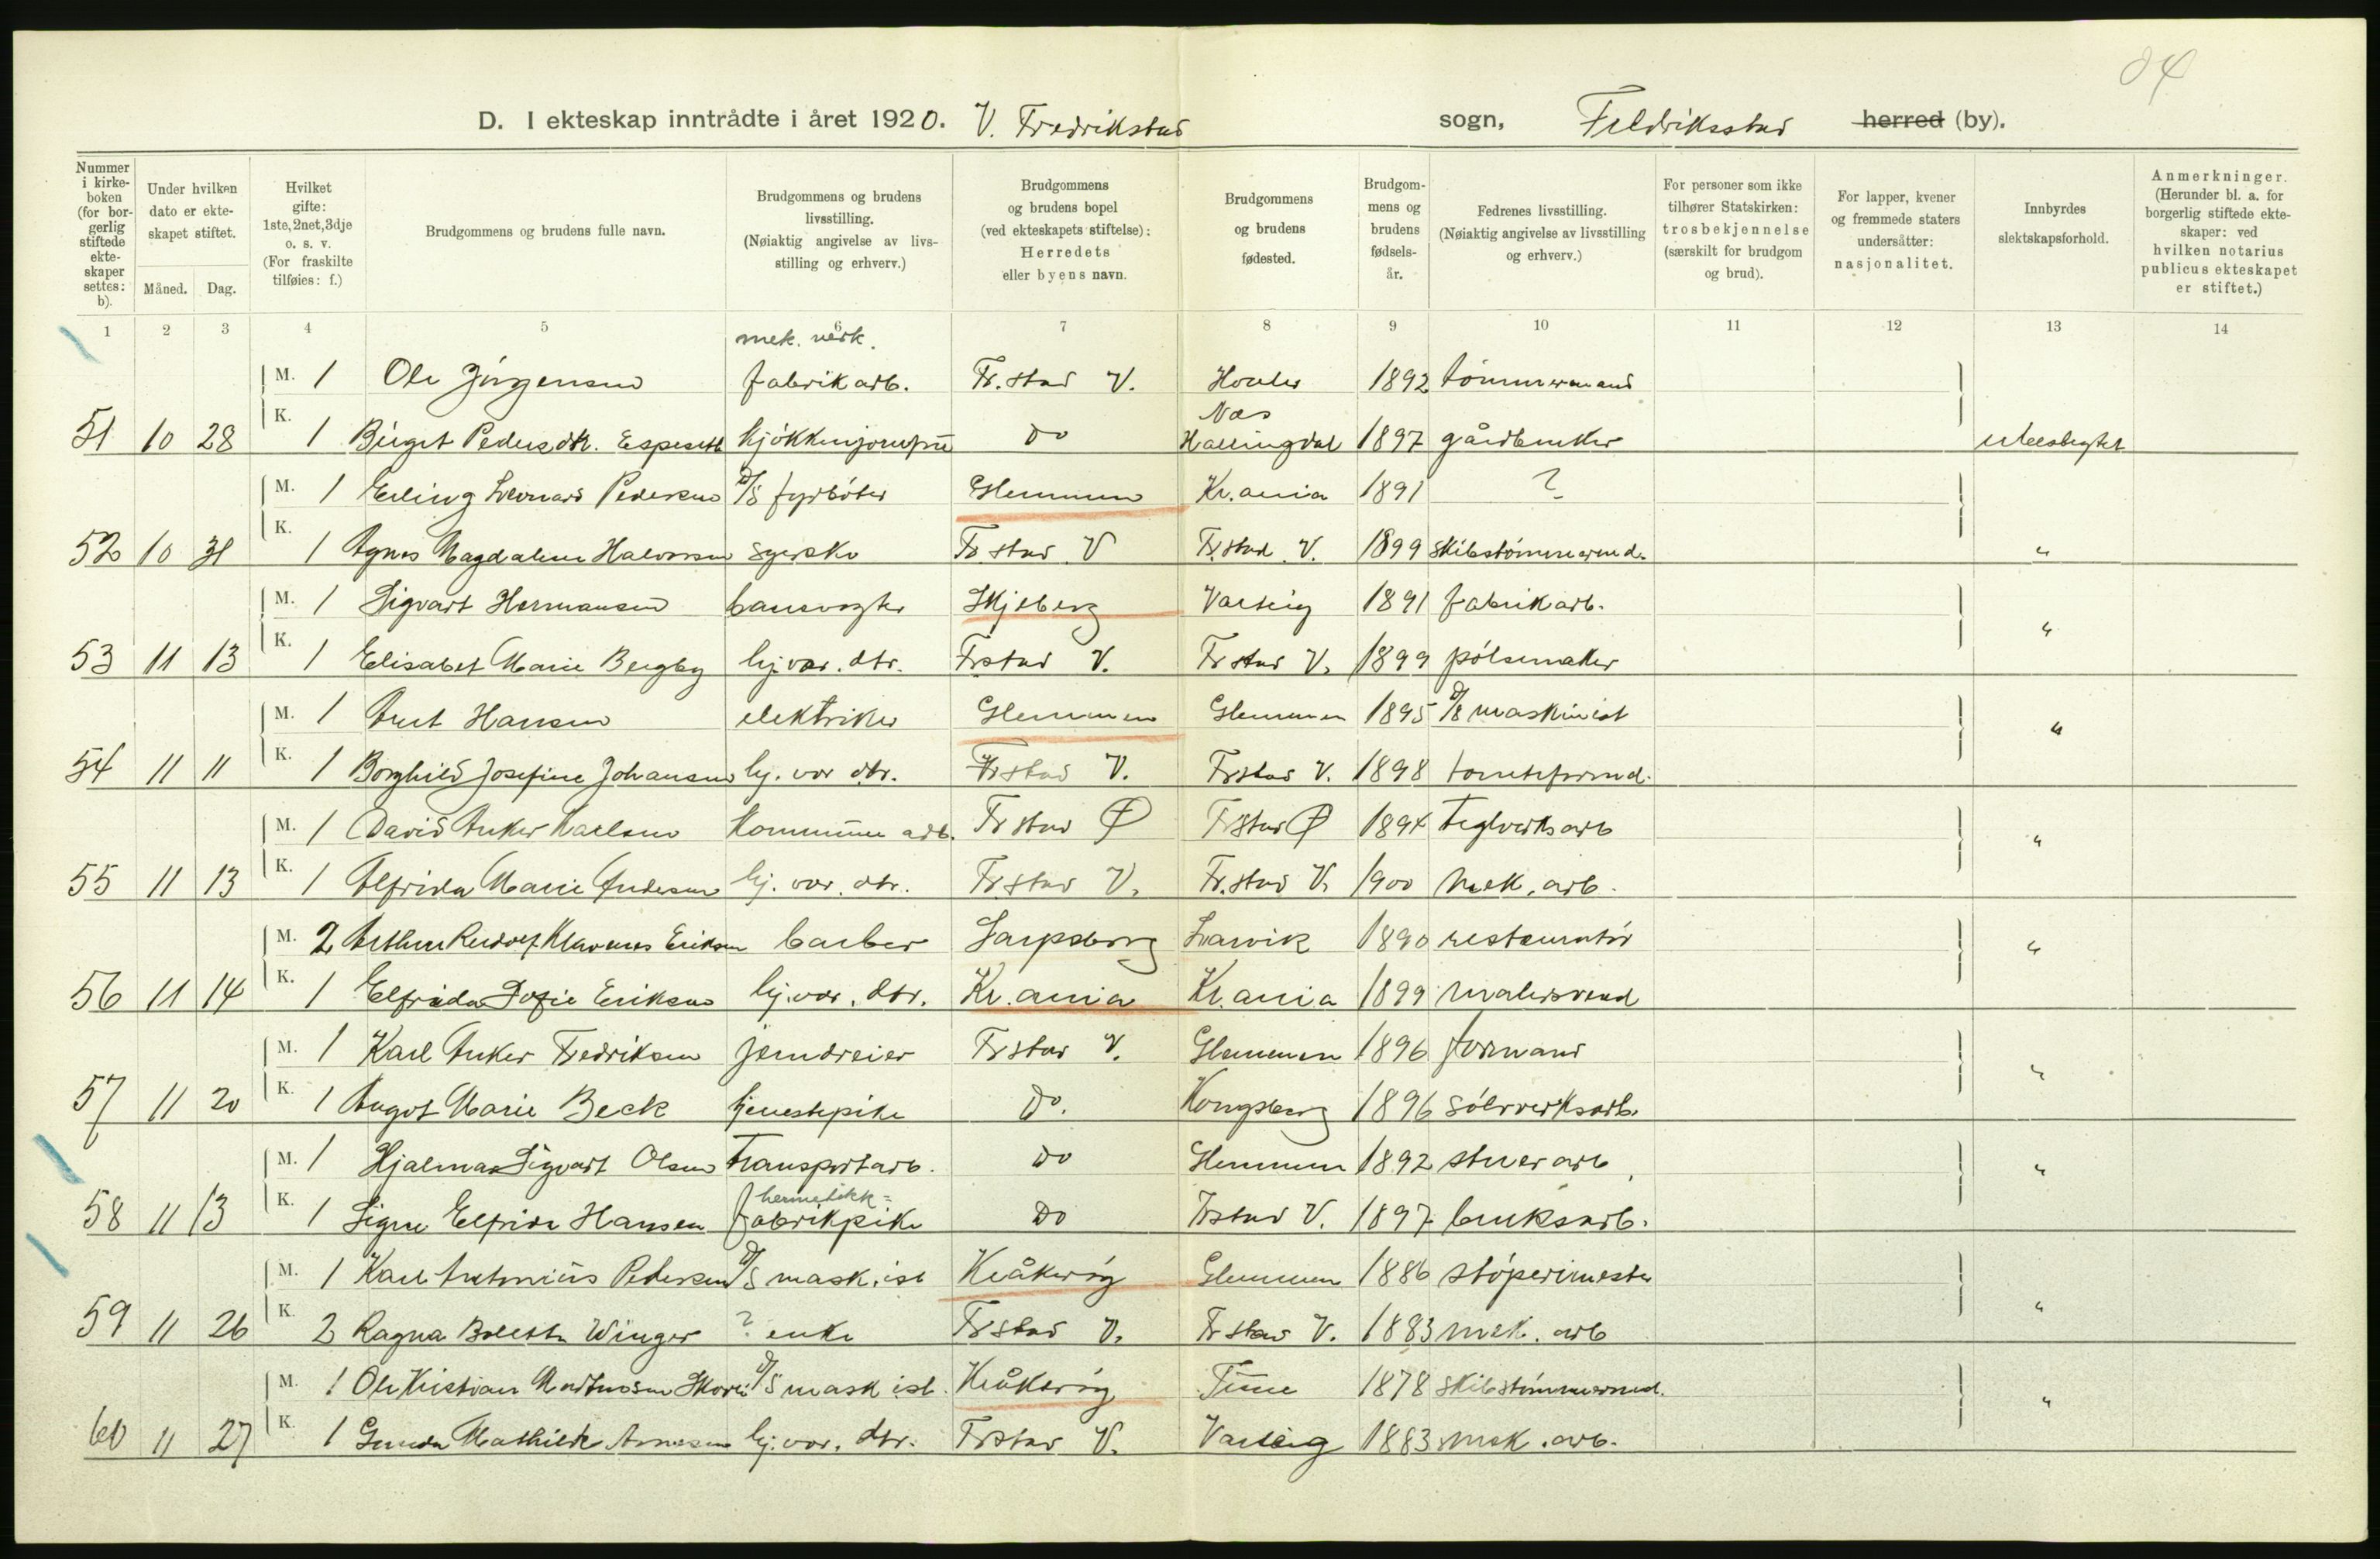 84
D. I ekteskap inntrådte i året 1920. V. Fredrikstad sogn, Fredriksstad herred (by).
Nummer i kirkeboken (for borgerlig stiftede ekteskaper settes: b).
Under hvilken dato er ekteskapet stiftet.
Måned. Dag.
Hvilket gifte: 1ste, 2net, 3dje o. s. v. (For fraskilte tilføies: f.)
Brudgommens og brudens fulle navn.
Brudgommens og brudens livsstilling. (Nøiaktig angivelse av livsstilling og erhverv.)
Brudgommens og brudens bopel (ved ekteskapets stiftelse): Herredets eller byens navn.
Brudgommens og brudens fødested.
Brudgommens og brudens fødselsår.
Fedrenes livsstilling. (Nøiaktig angivelse av livsstilling og erhverv.)
For personer som ikke tilhører Statskirken: trosbekjennelse (særskilt for brudgom og brud).
For lapper, kvener og fremmede staters undersåtter: nasjonalitet.
Innbyrdes slektskapsforhold.
Anmerkninger. (Herunder bl. a. for borgerlig stiftede ekteskaper: ved hvilken notarius publicus ekteskapet er stiftet.)
1 2 3 4 5 6 7 8 9 10 11 12 13 14
mek. verk.
M. 1 Ole Jörgensen fabrikarb. Fr.stad V. Hvaler 1892 tömmermand
Nes
51 10 28 K. 1 Birget Pedersdtr. Espeseth kjökkenjomfru do Hallingdal 1897 gårdbruker ubeslegtet
M. 1 Erling Leonard Pedersen D/S fyrböter Glemmen Kr.ania 1891 ?
52 10 31 K. 1 Agnes Magdalene Halvorsen syerske Fr.stad V Fr.stad V. 1899 skibstömmermd. "
M. 1 Sigvart Hermansen banevogter Skjeberg Varteig 1891 fabrikarb.
53 11 13 K. 1 Elisabet Marie Bergby hj.vær. dtr. Frstad V. Frstad V. 1899 pölsemaker "
M. 1 Arnt Hansen elektriker Glemmen Glemmen 1895 D/S maskinist
54 11 11 K. 1 Borghild Josefine Johansen hj. vær dtr. Frstad V. Frstad V. 1898 tomteformd. "
M. 1 David Anker Karlsen Kommune arb. Frstad Ø Frstad Ø 1894 Teglverksarb
55 11 13 K. 1 Alfrida Marie Andersen hj. vær. dtr. Frstad V. Fr.stad V. 1900 mek. arb. "
M. 2 Arthur Rudolf Klavenes Eriksen barber Sarpsborg Larvik 1890 restauratör
56 11 14 K. 1 Elfrida Sofie Eriksen hj.vær. dtr. Kr.ania Kr.ania 1899 malersvend "
M. 1 Karl Anker Fredriksen jerndreier Frstad V. Glemmen 1896 formand
57 11 20 K. 1 Aagot Marie Beck tjenestepike Do. Kongsberg 1896 sölvverksarb. "
M. 1 Hjalmar Sigvart Olsen Transportarb. Do Glemmen 1892 stuerarb
hermetikk=
58 11 13 K. 1 Signe Elfrida Hansen fabrikpike Do Frstad V. 1897 bruksarb. "
M. 1 Karl Antonius Pedersen D/S mask.ist Kråkeröy Glemmen 1886 stöperimester
59 11 26 K. 2 Ragna Bolette Winger ? enke Frstad V. Frstad V. 1883 mek. arb "
M. 1 Ole Kristian D/S mask ist. Kråkeröy Tune 1878 skibstömmermd.
60 11 27 K. 1 Gunda Mathilde Arnesen hj.vær. dtr. Frstad V. Varteig 1883 mek. arb. "